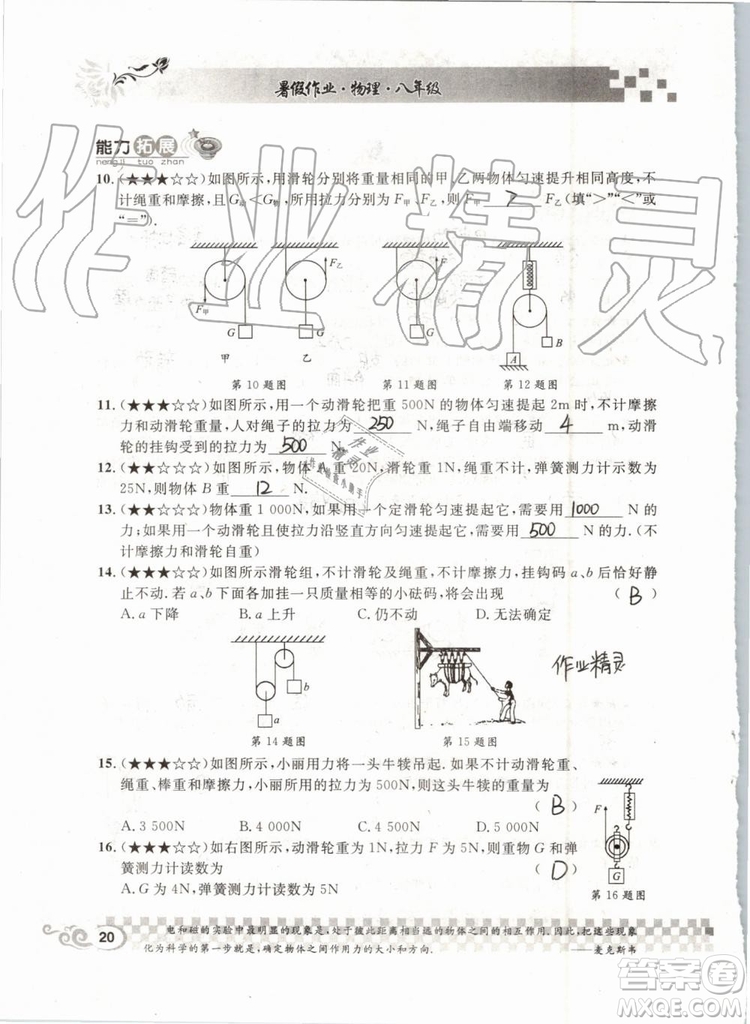 暑假作业·物理·八年级
能力拓展
nengli tuo zhan
10.(★★★☆☆)如图所示,用滑轮分别将重量相同的甲、乙两物体匀速提升相同高度,不
计绳重和摩擦,且G轮<G物,所用拉力分别为F甲、F乙,则F甲 > F乙(填“>”“<”或
“=”).
F甲 F乙 F
G G G A B
甲 乙
第10题图 第11题图 第12题图
11.(★★★☆☆)如图所示,用一个动滑轮把重500N的物体匀速提起2m时,不计摩擦
力和动滑轮重量,人对绳子的拉力为 250 N,绳子自由端移动 4 m,动滑
轮的挂钩受到的拉力为 500 N.
12.(★★★☆☆)如图所示,物体A重20N,滑轮重、绳重不计,弹簧测力计示数为
25N,则物体B重 12 N.
13.(★★★☆☆)物体重1 000N,如果用一个定滑轮匀速提起它,需要用 1000 N
的力,如果用一个动滑轮且使拉力沿竖直方向匀速提起它,需要用 500 N的力.(不
计摩擦力和滑轮自重)
14.(★★★☆☆)如图所示滑轮组,不计滑轮及绳重,不计摩擦力,挂钩码a、b后恰好静
止不动.若a、b下各加挂一个质量相等的小砝码,将会出现 ( B )
A.a下降 B.a上升 C.仍不动 D.无法确定
a b
作业精灵
第14题图 第15题图
15.(★★★☆☆)如图所示,小丽用力将一头牛犊吊起.如不计动滑轮重、
绳重、棒重和摩擦力,小丽所用的拉力为500N,则这头牛犊的重量为
( B )
A.3 500N B.4 000N C.4 500N D.5 000N
16.(★★★☆☆)如右图所示,动滑轮重为1N,拉力F为5N,则物重G和弹
簧测力计读数为 ( D )
A.G为4N,弹簧测力计读数为5N
F
G
第16题图
20
电和磁的实验中最明显的现象是,处于彼此距离相当远的物体之间的相互作用.因此,把这些现象
化为科学的第一步就是,确定物体之间作用力的大小和方向.
——麦克斯韦
作业精灵
答案圈
MXQE.COM